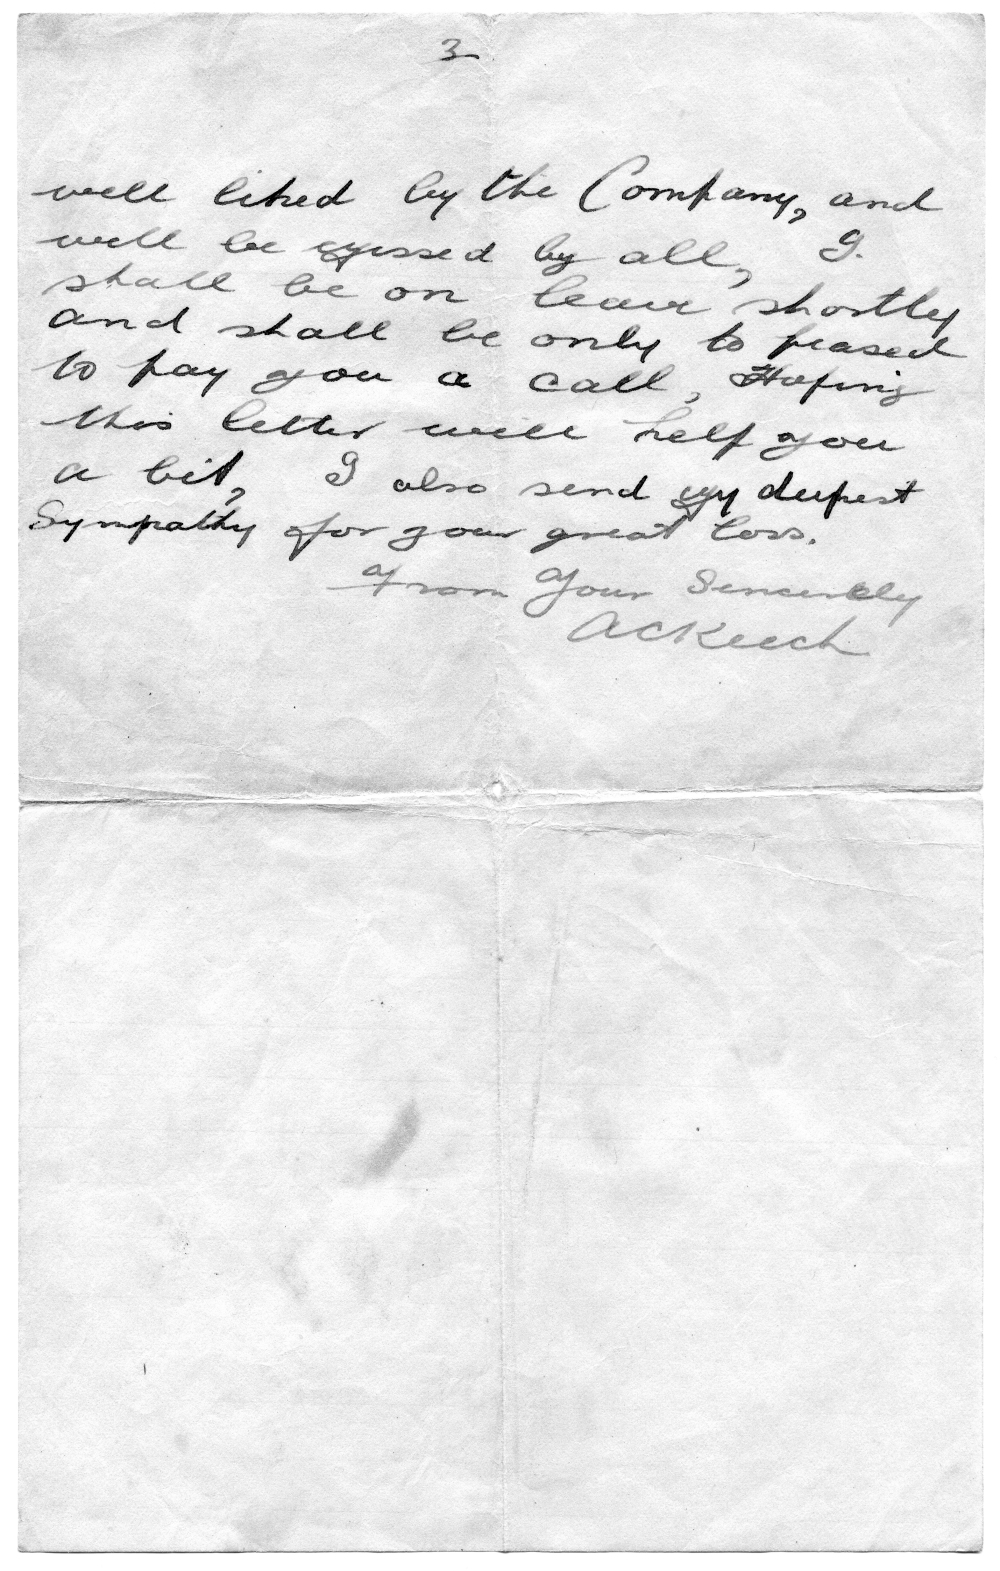 3
well liked by the Company, and
will be missed by all, I.
shall be on leave shortly
and shall be only to peased
to pay you a call, Hoping
this letter will help you
a bit, I also send my deepest
Sympathy for your great loss.
From Your Sincerely
ACKeech